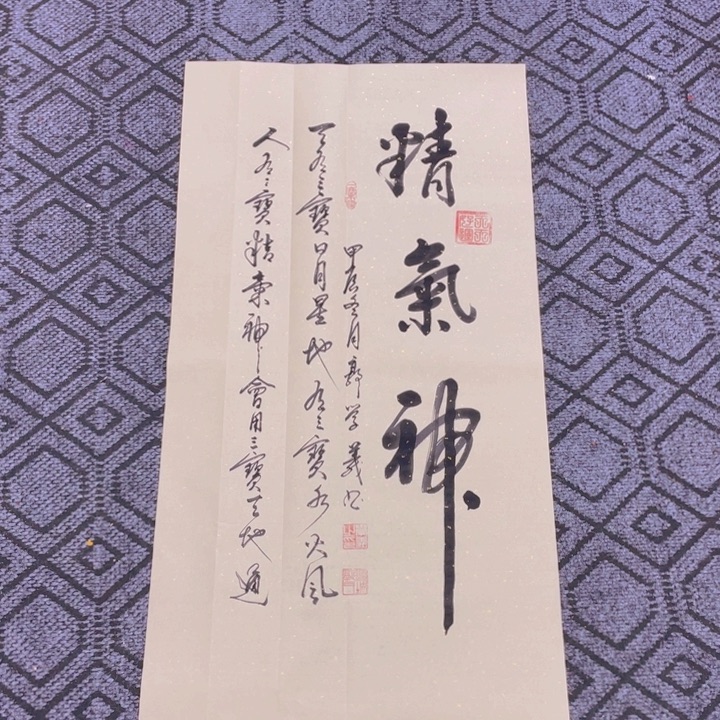 精氣神
甲辰冬月郭学義书
天有三寶日月星地有三寶水火風
人有三寶精氣神會用三寶天地通